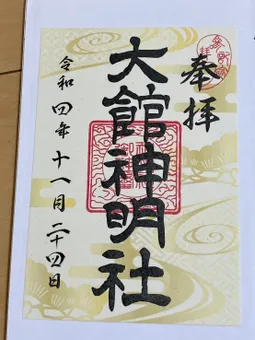 奉拝
大館神明社
令和四年十一月二十四日